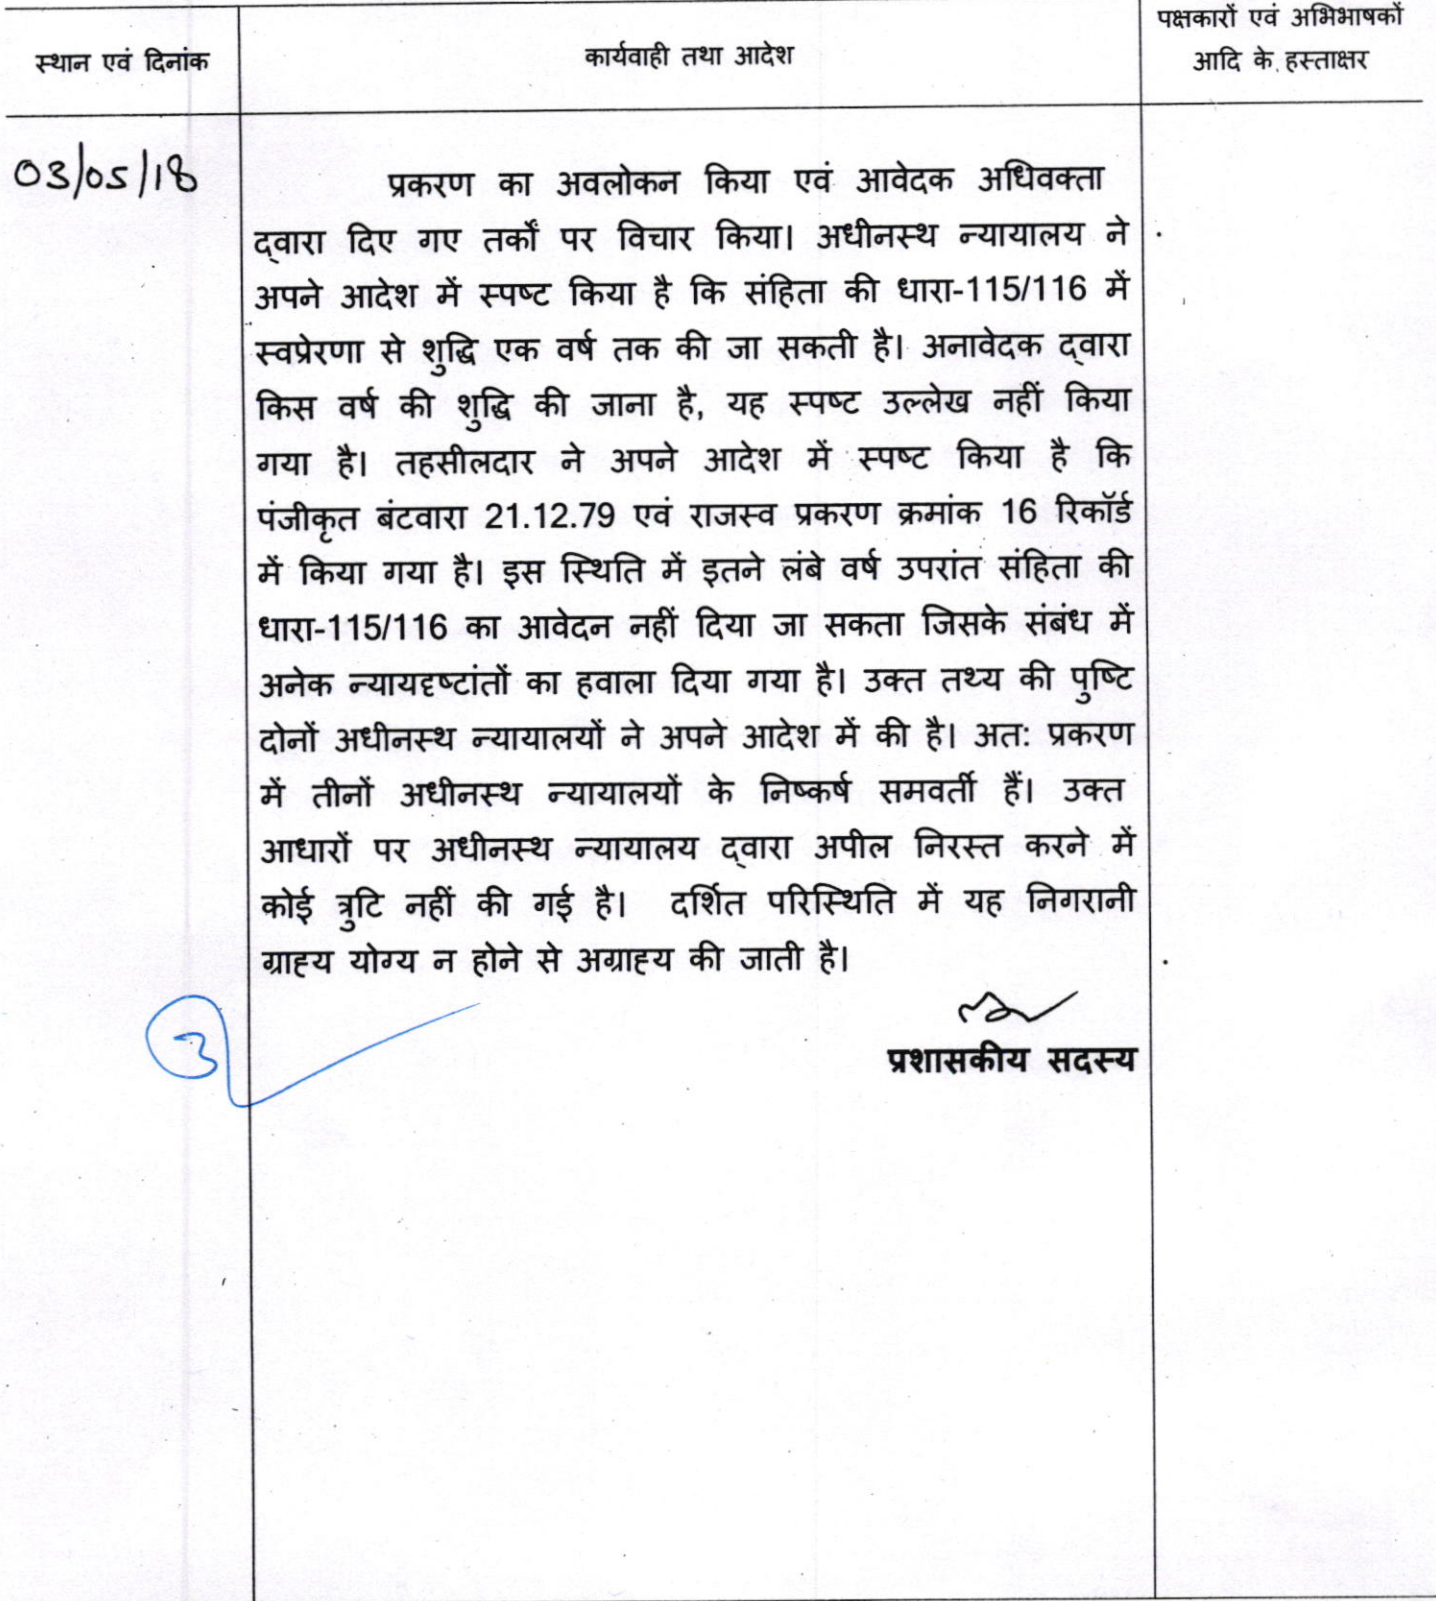 स्थान एवं दिनांक
कार्यवाही तथा आदेश
पक्षकारों एवं अभिभाषकों
आदि के हस्ताक्षर
03/05/18
प्रकरण का अवलोकन किया एवं आवेदक अधिवक्ता
द्वारा दिए गए तर्कों पर विचार किया। अधीनस्थ न्यायालय ने
अपने आदेश में स्पष्ट किया है कि संहिता की धारा-115/116 में
स्वप्रेरणा से शुद्धि एक वर्ष तक की जा सकती है। अनावेदक द्वारा
किस वर्ष की शुद्धि की जाना है, यह स्पष्ट उल्लेख नहीं किया
गया है। तहसीलदार ने अपने आदेश में स्पष्ट किया है कि
पंजीकृत बंटवारा 21.12.79 एवं राजस्व प्रकरण क्रमांक 16 रिकॉर्ड
में किया गया है। इस स्थिति में इतने लंबे वर्ष उपरांत संहिता की
धारा-115/116 का आवेदन नहीं दिया जा सकता जिसके संबंध में
अनेक न्यायदृष्टांतों का हवाला दिया गया है। उक्त तथ्य की पुष्टि
दोनों अधीनस्थ न्यायालयों ने अपने आदेश में की है। अत: प्रकरण
में तीनों अधीनस्थ न्यायालयों के निष्कर्ष समवर्ती हैं। उक्त
आधारों पर अधीनस्थ न्यायालय द्वारा अपील निरस्त करने में
कोई त्रुटि नहीं की गई है। दर्शित परिस्थिति में यह निगरानी
ग्राह्य योग्य न होने से अग्राह्य की जाती है।
प्रशासकीय सदस्य